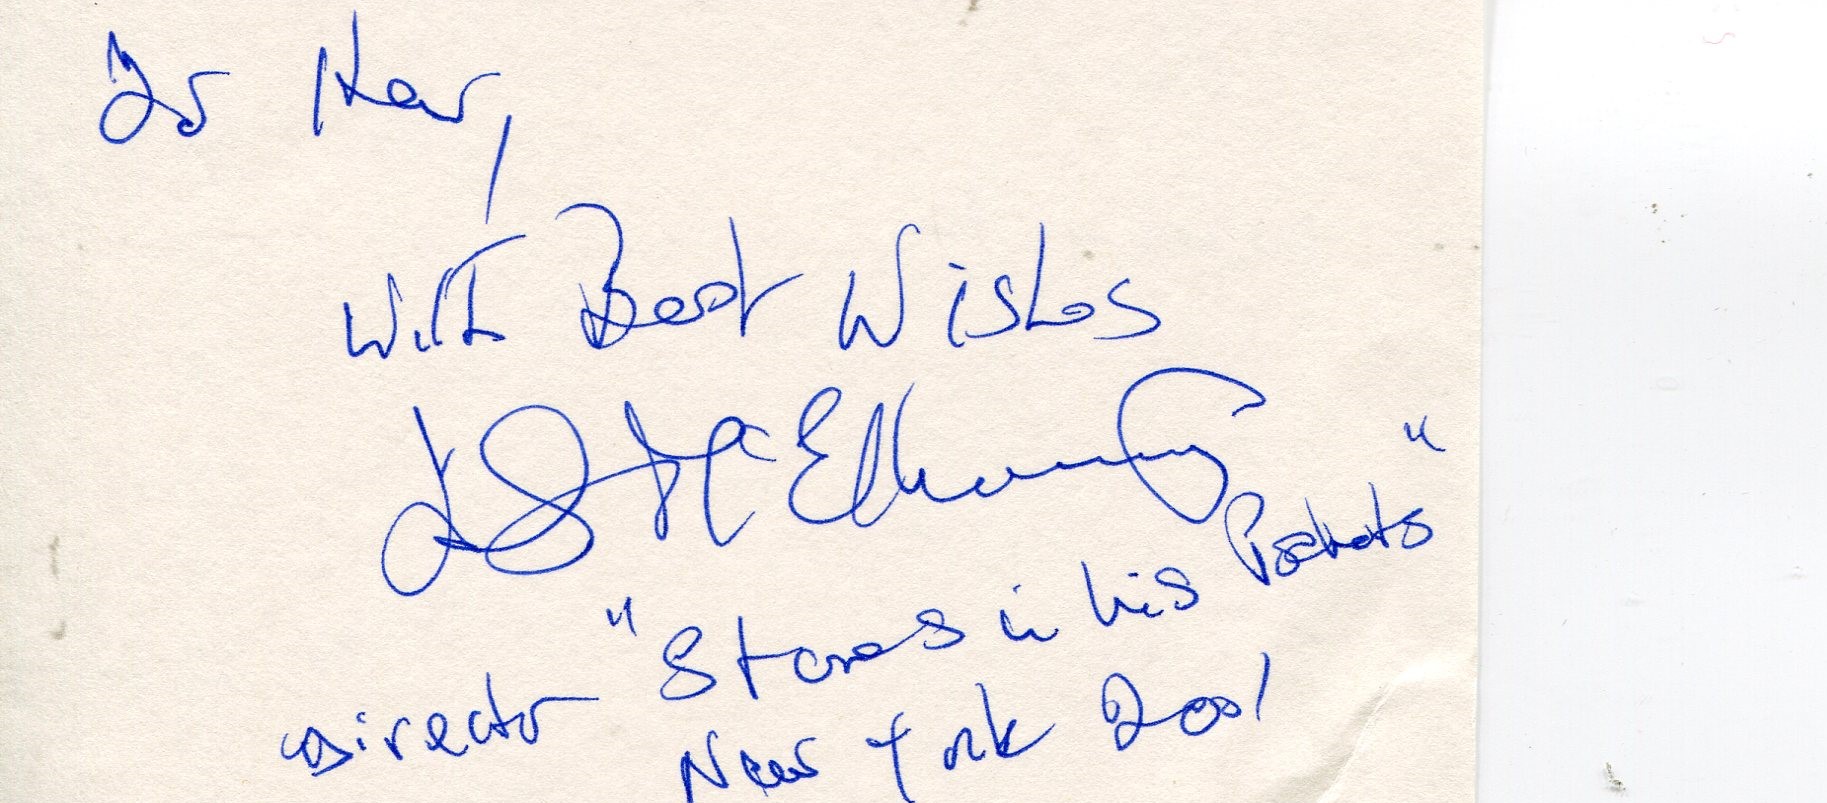 To Ken,
With Best Wishes
McElhinney
Director "Stones in his Pockets"
New York 2001